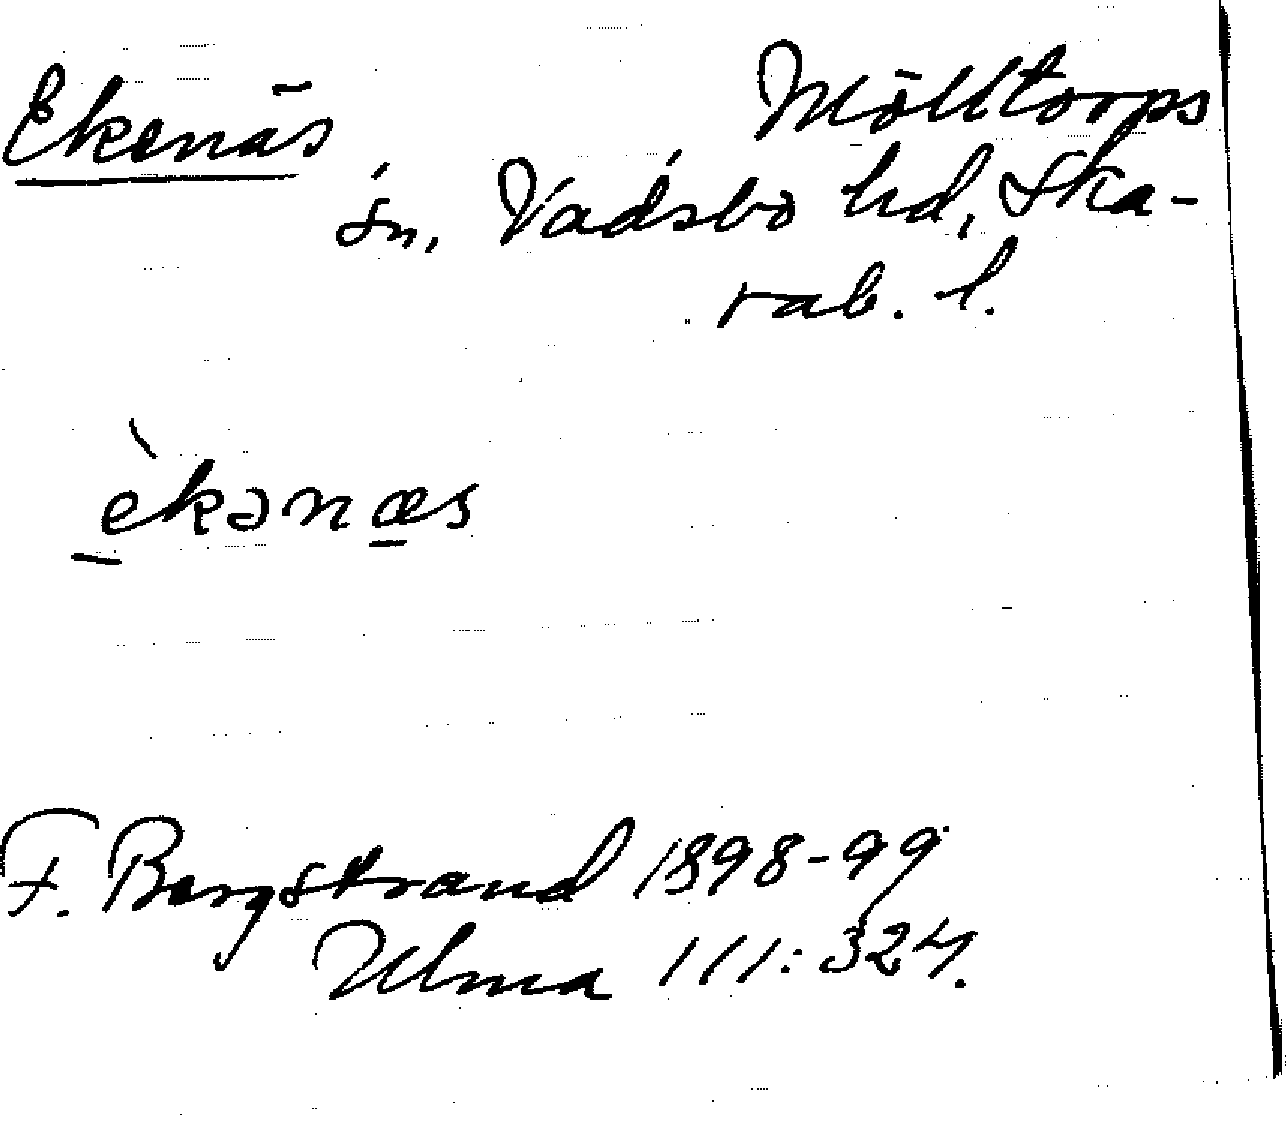 Ekenäs Mölltorps
sn, Vadsbo hd, Ska-
rab. l.
èkənæs
F. Bergstrand 1898-99
Ulma 111:324.